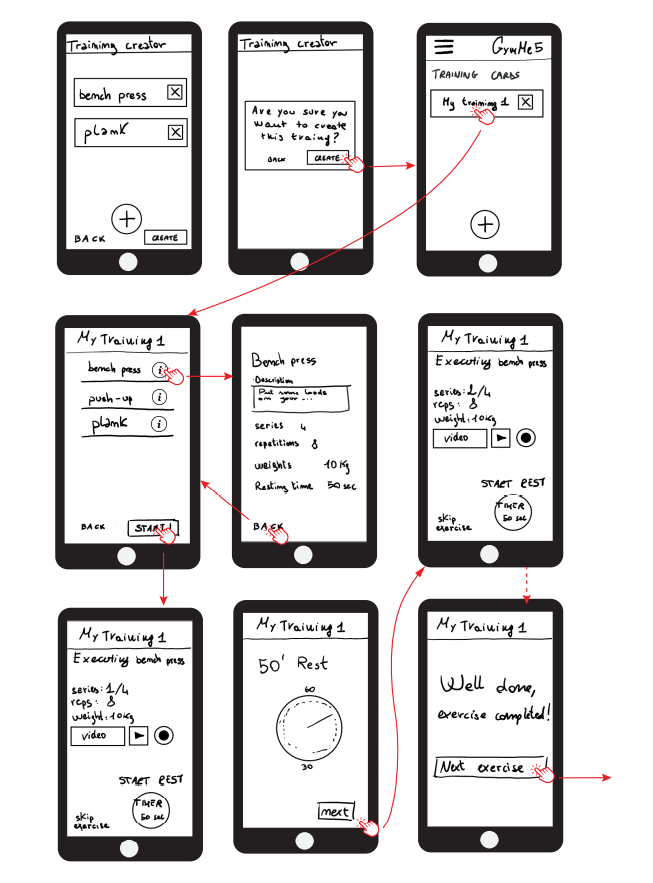 Training creator
bench press
plank
BACK
CREATE
Training creator
Are you sure you
want to create
this traing?
BACK
CREATE
GymMe5
TRAINING CARDS
My training 1
My Training 1
bench press i
push-up i
plank i
BACK
START!
Bench press
Description
Put some loads
on your ...
series 4
repetitions 8
weights 10 Kg
Resting time 50 sec
BACK
My Training 1
Executing bench press
series: 2/4
reps: 8
weight: 10Kg
video
START REST
TIMER
50 sec
skip
exercise
My Training 1
Executing bench press
series: 1/4
reps: 8
weight: 10Kg
video
START REST
TIMER
50 sec
skip
exercise
My Training 1
50' Rest
60
30
next
My Training 1
Well done,
exercise completed!
Next exercise